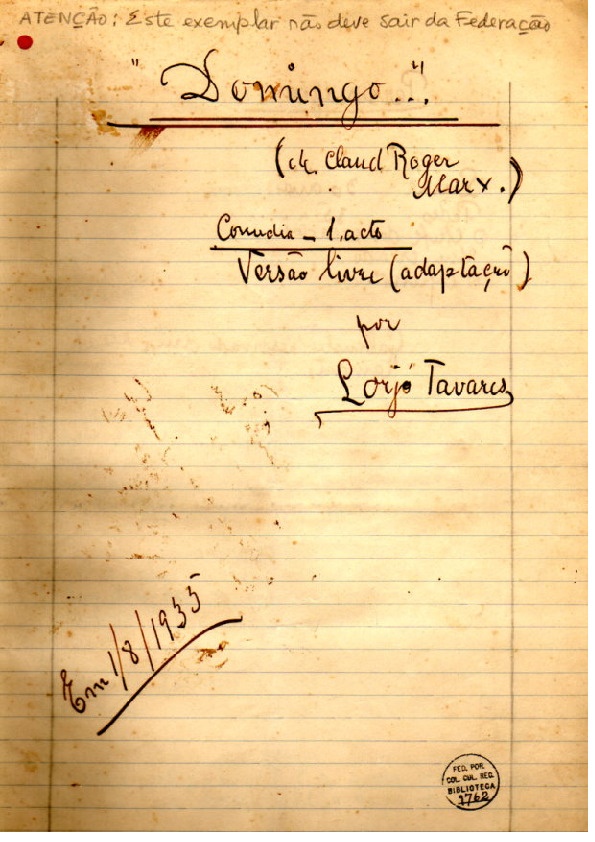 ATENÇÃO: Este exemplar não deve sair da Federação
"Domingo..."
(de Claud Roger
Marx.)
Comedia - 1 acto
Versão livre (adaptação)
por
Lorjó Tavares
Em 1/8/1935
FED. POR.
COL. CUL. REC.
BIBLIOTECA
1762